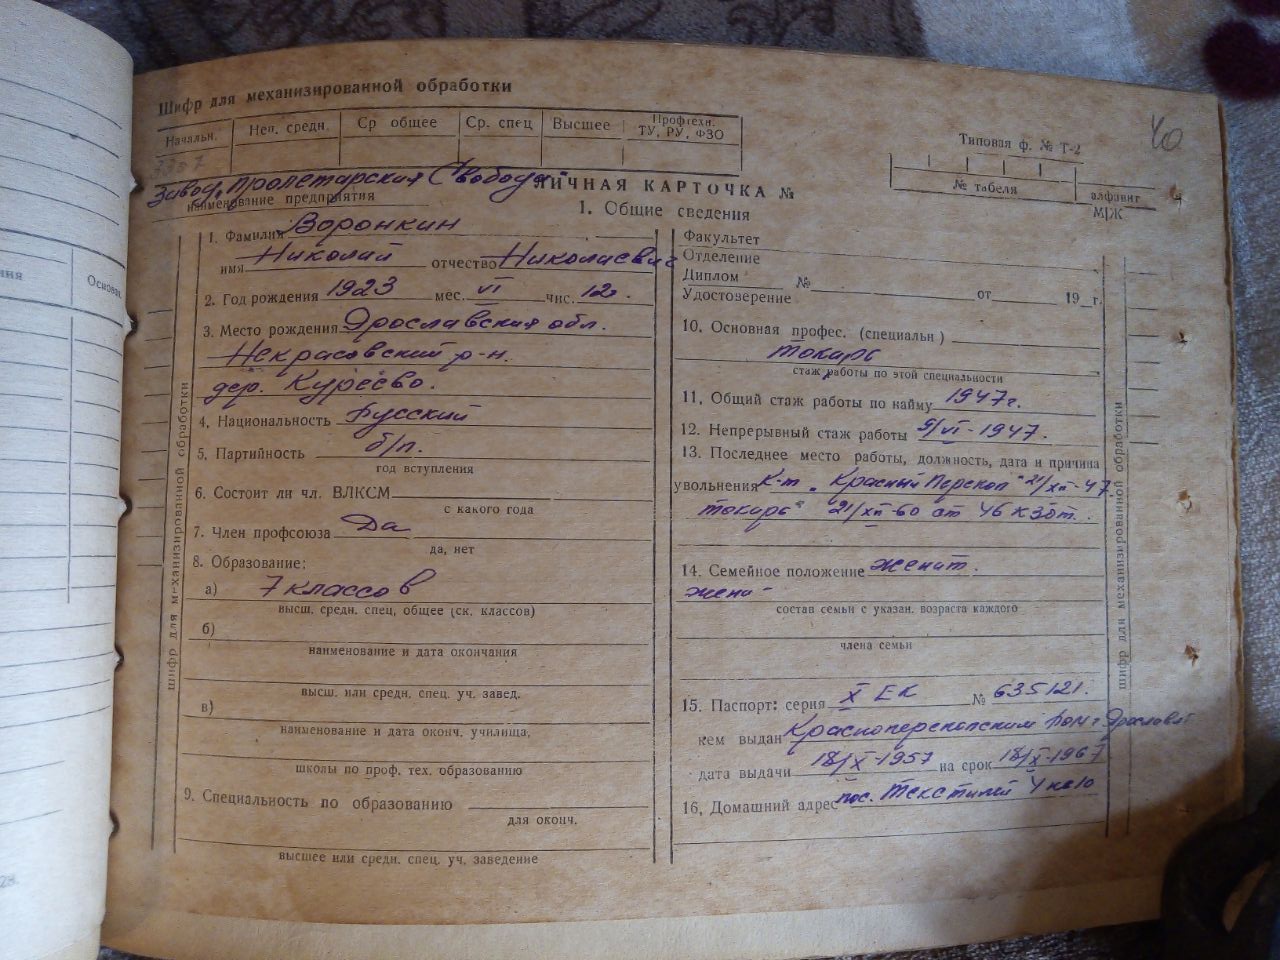 Шифр для механизированной обработки
Начальн. Неп. средн. Ср общее Ср. спец Высшее Профтехн. ТУ, РУ, ФЗО
40
Типовая ф. № Т-2
№ табеля алфавит
М/Ж
Завод „Пролетарская Свобода"
наименование предприятия
ЛИЧНАЯ КАРТОЧКА №
1. Общие сведения
1. Фамилия Воронкин
имя Николай отчество Николаевич
2. Год рождения 1923 мес. VI чис. 12.
3. Место рождения Ярославская обл.
Некрасовский р-н.
дер. Куреево.
4. Национальность Русский
5. Партийность б/п.
год вступления
6. Состоит ли чл. ВЛКСМ
с какого года
7. Член профсоюза Да
да, нет
8. Образование:
а) 7 классов
высш. средн. спец. общее (ск. классов)
б)
наименование и дата окончания
высш. или средн. спец. уч. завед.
в)
наименование и дата оконч. училища,
школы по проф. тех. образованию
9. Специальность по образованию
для оконч.
высшее или средн. спец. уч. заведение
Факультет
Отделение
Диплом №
Удостоверение от 19 г.
10. Основная профес. (специальн)
токарь
стаж работы по этой специальности
11. Общий стаж работы по найму 1947г.
12. Непрерывный стаж работы 9/VI-1947.
13. Последнее место работы, должность, дата и причина
увольнения К-т „Красный Перекоп" 21/XII-47.
токарь 21/XII-60 ст 46 КЗОТ.
14. Семейное положение женат.
жена -
состав семьи с указан. возраста каждого
члена семьи
15. Паспорт: серия X ЕК № 635121.
кем выдан Красноперекопским РОМ г Ярославля
дата выдачи 18/X-1957 на срок 18/X-1967
16. Домашний адрес пос. Текстилей
шифр для механизированной обработки
шифр для механизированной обработки
ния Основан